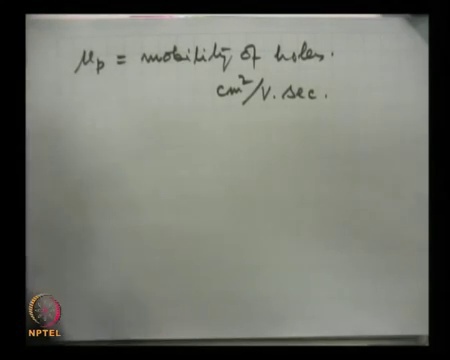 μp = mobility of holes.
cm²/V.sec.
NPTEL